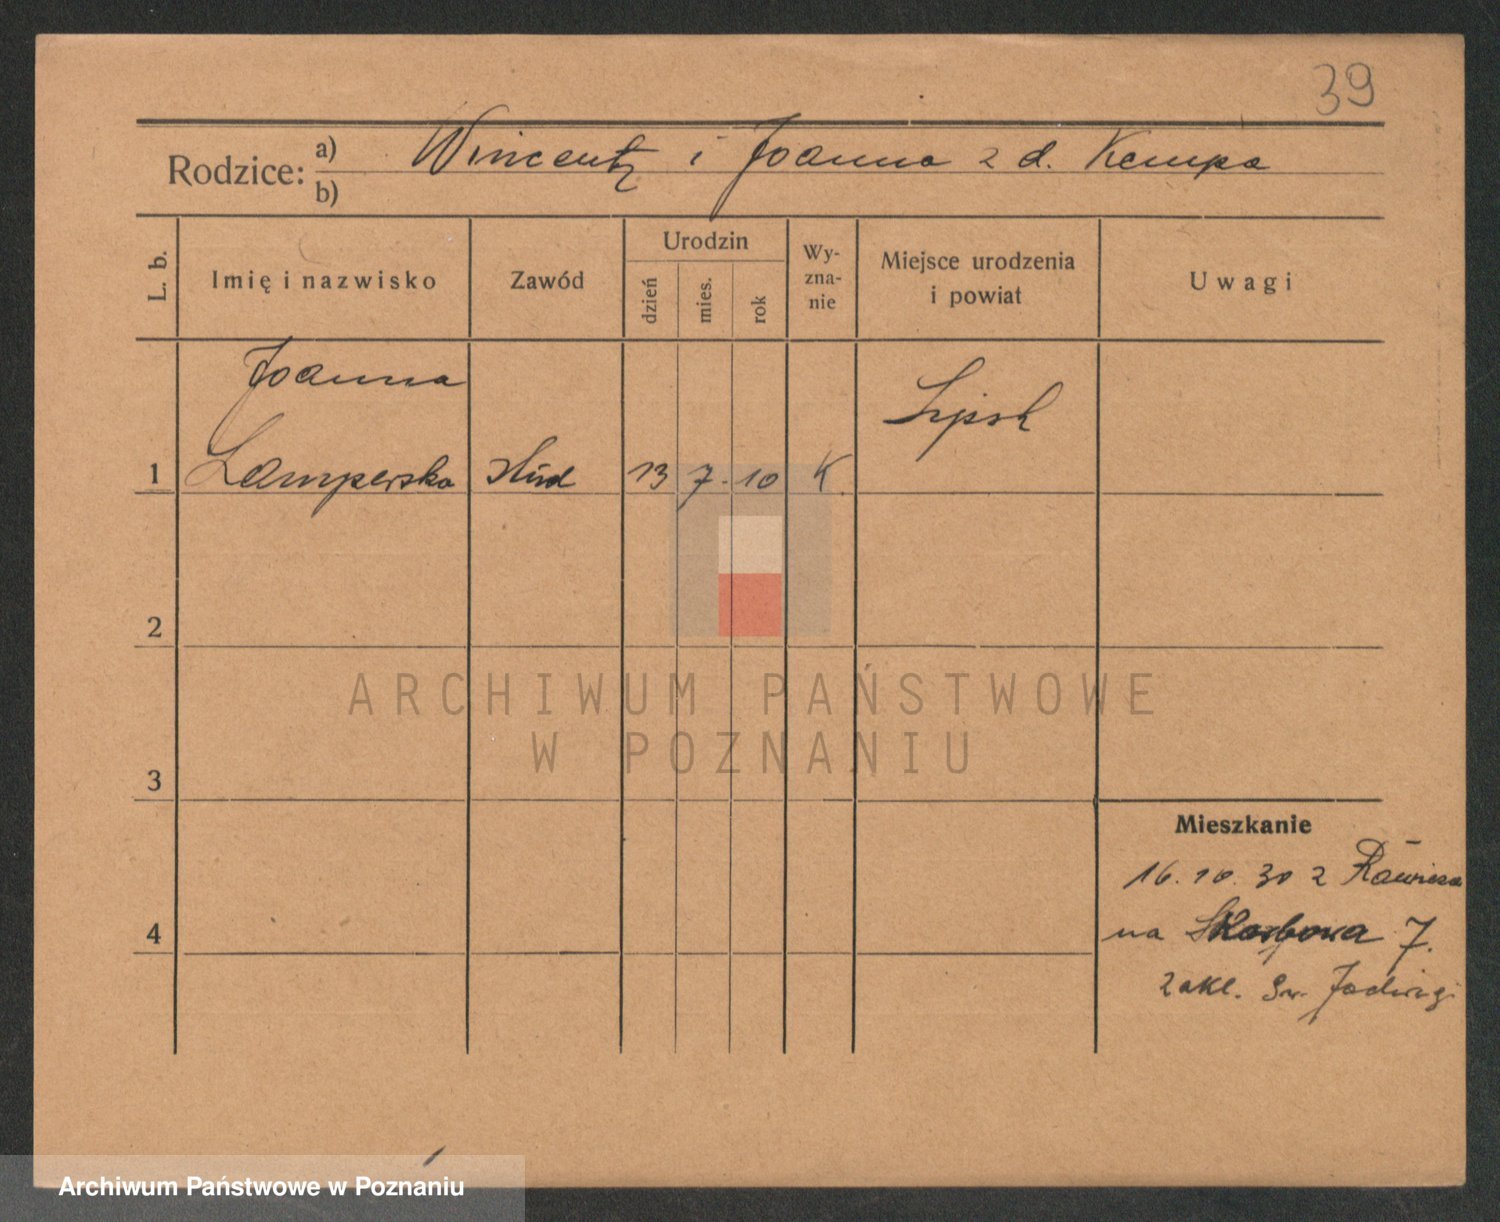 39
Rodzice: a) Wincenty i Joanna z d. Kempa
b)
L. b.
Imię i nazwisko
Zawód
Urodzin
dzień
mies.
rok
Wy-
zna-
nie
Miejsce urodzenia
i powiat
Uwagi
Joanna
Lipsk
1 Lamperska stud 13 7. 10 K.
2
3
4
ARCHIWUM PAŃSTWOWE
W POZNANIU
Mieszkanie
16. 10. 30 z Rawicza
na Skarbowa 7.
zakl. Św. Jadwigi
Archiwum Państwowe w Poznaniu